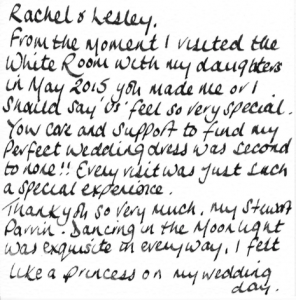 Rachel & Lesley,
From the moment I visited the
White Room with my daughters
in May 2015 you made me or I
should say 'us' feel so very special.
Your care and support to find my
perfect wedding dress was second
to none!! Every visit was just such
a special experience.
Thankyou so very much, my Stewart
Parvin - Dancing in the Moonlight
was exquisite in everyway, I felt
like a princess on my wedding
day.